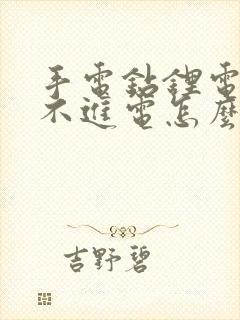 手電鉆鋰電
不進電怎麼
吉野碧